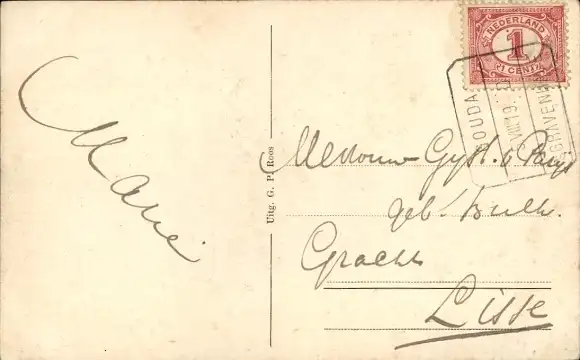 Marie
Uitg. G. P. Roos
NEDERLAND
1
1 CENT
OUDA
VII.19
GRAVEN
Mevrouw Gyst. v Parys
geb. Bulk.
Gracht
Lisse